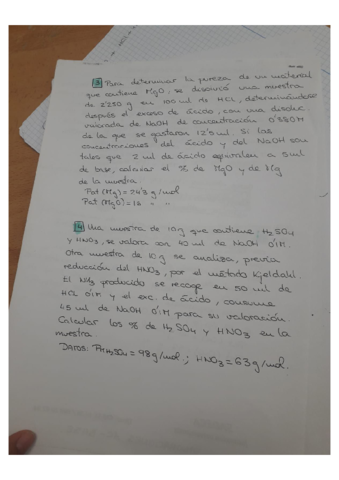 3 Para determinar la pureza de un material
que contiene MgO, se disolvió una muestra
de 2'250 g en 100 ml de HCl, determinándose
después el exceso de ácido, con una disoluc.
valorada de NaOH de concentración 0'880M
de la que se gastaron 12'5 ml. Si las
concentraciones del ácido y del NaOH son
tales que 2 ml de ácido equivalen a 5 ml
de base, calcular el % de MgO y de Mg
de la muestra.
Pat (Mg) = 24'3 g/mol
4 Una muestra de 10 g que contiene H2SO4
y HNO3, se valora con 40 ml de NaOH 0'1M.
Otra muestra de 10 g se analiza, previa
reducción del HNO3, por el método Kjeldahl.
El NH3 producido se recoge en 50 ml de
HCl 0'1M y el exc. de ácido, consume
45 ml de NaOH 0'1M para su valoración.
Calcular los % de H2SO4 y HNO3 en la
muestra
DATOS: PmH2SO4 = 98 g/mol. ; HNO3 = 63 g/mol.